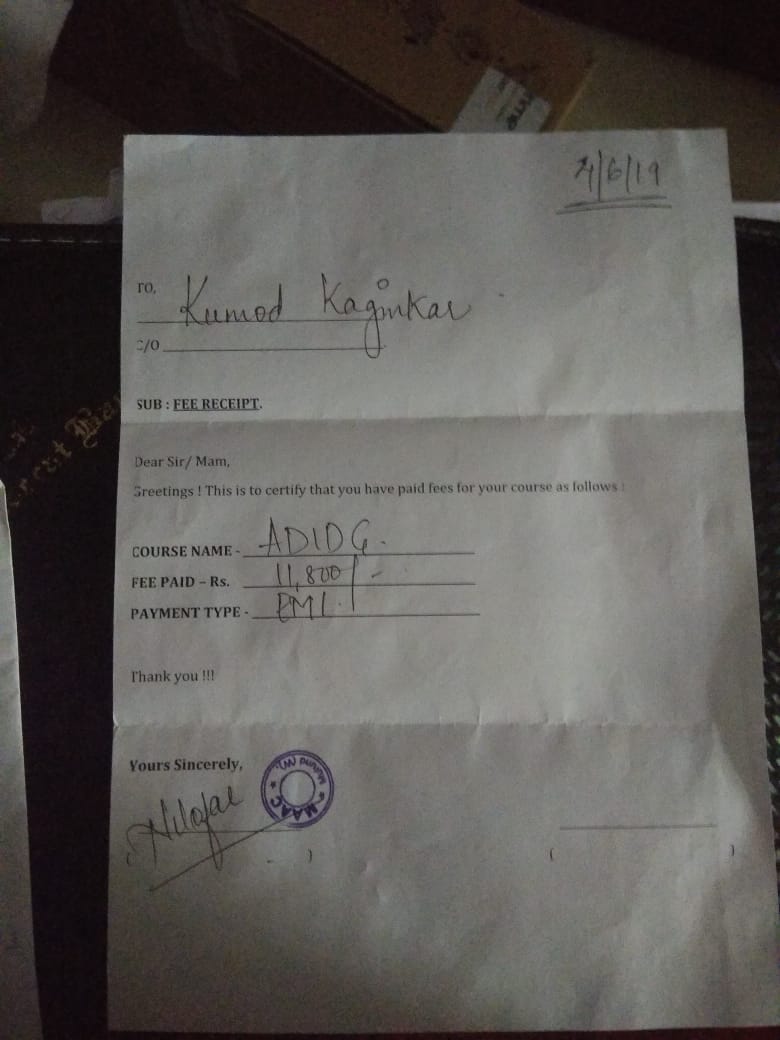 4/6/19
TO,
Kumod Kaginkar
C/O
SUB : FEE RECEIPT.
Dear Sir/ Mam,
Greetings ! This is to certify that you have paid fees for your course as follows :
COURSE NAME - ADIDG.
FEE PAID – Rs. 11,800/-
PAYMENT TYPE - EMI.
Thank you !!!
Yours Sincerely,
MAAC * Mulund (W). *
( )
( )